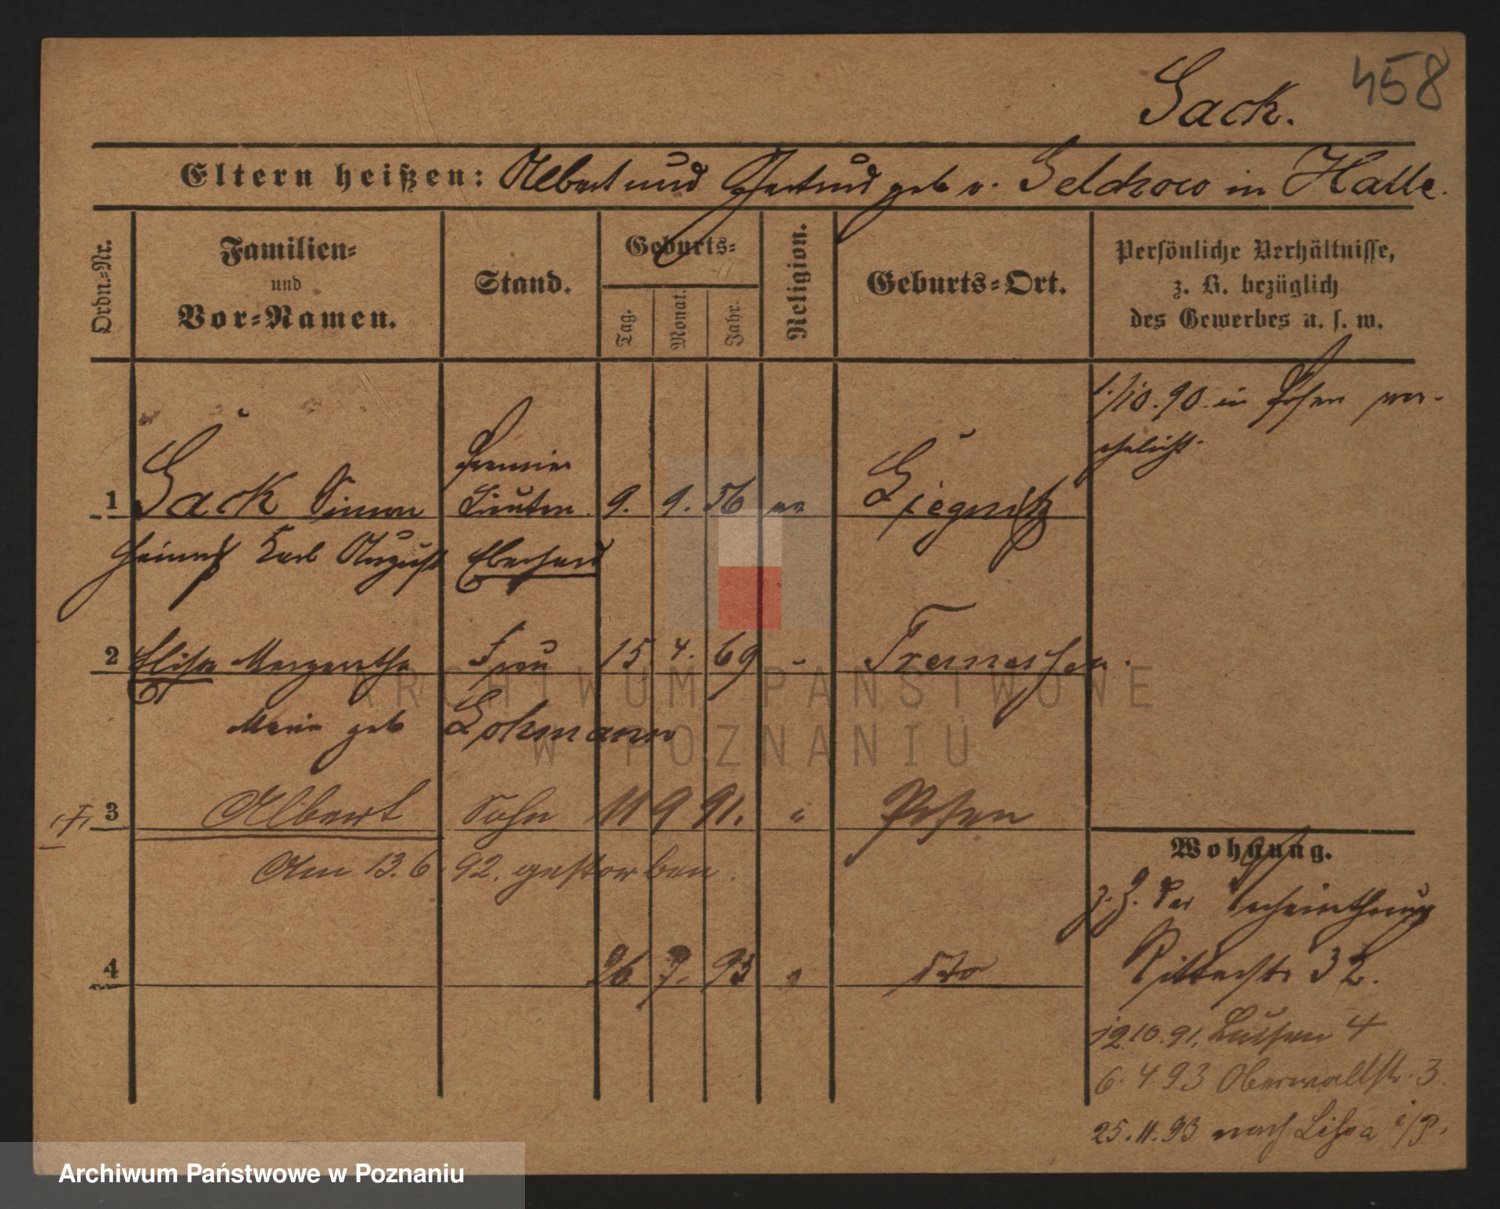 458
Sack.
Eltern heißen: Albert und Gertrud geb v. Selchow in Halle.
Ordn.-Nr.
Familien-
und
Vor-Namen.
Stand.
Geburts-
Tag. Monat. Jahr.
Religion.
Geburts-Ort.
Persönliche Verhältnisse,
z. B. bezüglich
des Gewerbes u. s. w.
1./10. 90. in Posen ver-
ehelicht.
Premier
1 Sack Simon Lieuten. 9. 9. 56 ev Liegnitz
Heinrich Karl August Eberhard
2 Elise Margarethe Frau 15 4. 69 " Tremessen.
Marie geb Lohmann
3 Albert Sohn 11 9 91. " Posen
Am 13.6.92. gestorben.
4 26 7. 93 " dto
Wohnung.
z. Z. der
Ritterstr 32.
12.10.91. Luisen 4
6. 4 93 Oberwallstr. 3
25.11.93 nach Lissa i/P.
ARCHIWUM PAŃSTWOWE
W POZNANIU
Archiwum Państwowe w Poznaniu